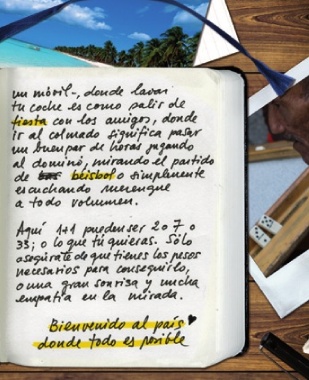 un móvil-, donde lavar
tu coche es como salir de
fiesta con los amigos, donde
ir al colmado significa pasar
un buen par de horas jugando
al dominó, mirando el partido
de beisbol o simplemente
escuchando merengue
a todo volumen.
Aquí 1+1 pueden ser 2 o 7 o
33; o lo que tú quieras. Sólo
asegúrate de que tienes los pesos
necesarios para conseguirlo,
o una gran sonrisa y mucha
empatía en la mirada.
Bienvenido al país
donde todo es posible